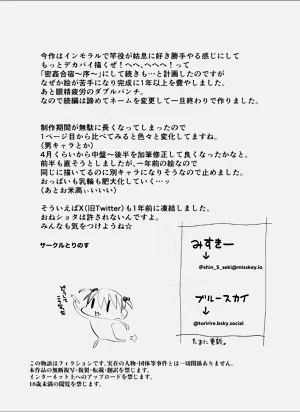 今作はインモラルで竿役が姑息に好き勝手やる感じにして
もっとデカパイ描くぜ!へへ、へへへへ!って
「密姦合宿～序～」にして続きも…と計画したのですが
なぜか絵が苦手になり完成に1年以上を費やしました。
あと眼精疲労のダブルパンチ。
なので続編は諦めてネームを変更して一旦終わりで作りました。
制作期間が無駄に長くなってしまったので
1ページ目から比べてみると色々と変化してますね。
(男キャラとか)
4月くらいから中盤～後半を加筆修正して良くなったかなと。
前半も直そうとしましたが、一年前の絵なので
同じに描いてるのに別キャラになりそうなので止めました。
おっぱいも乳輪も肥大化していく…ッ
(あとお米高ぃぃいい)
そういえばX(旧Twitter)も1年前に凍結しました。
おねショタは許されないんですよ。
みんなも気をつけようね☆
サークルとりのす
みすきー
@shin_5_seki@misskey.io
ブルースカイ
@toririre.bsky.social
たまに更新。
この物語はフィクションです。実在の人物・団体等事件とは一切関係ありません。
本作品の無断複写・複製・転載・翻訳を禁じます。
インターネット上へのアップロードを禁じます。
18歳未満の閲覧を禁じます。